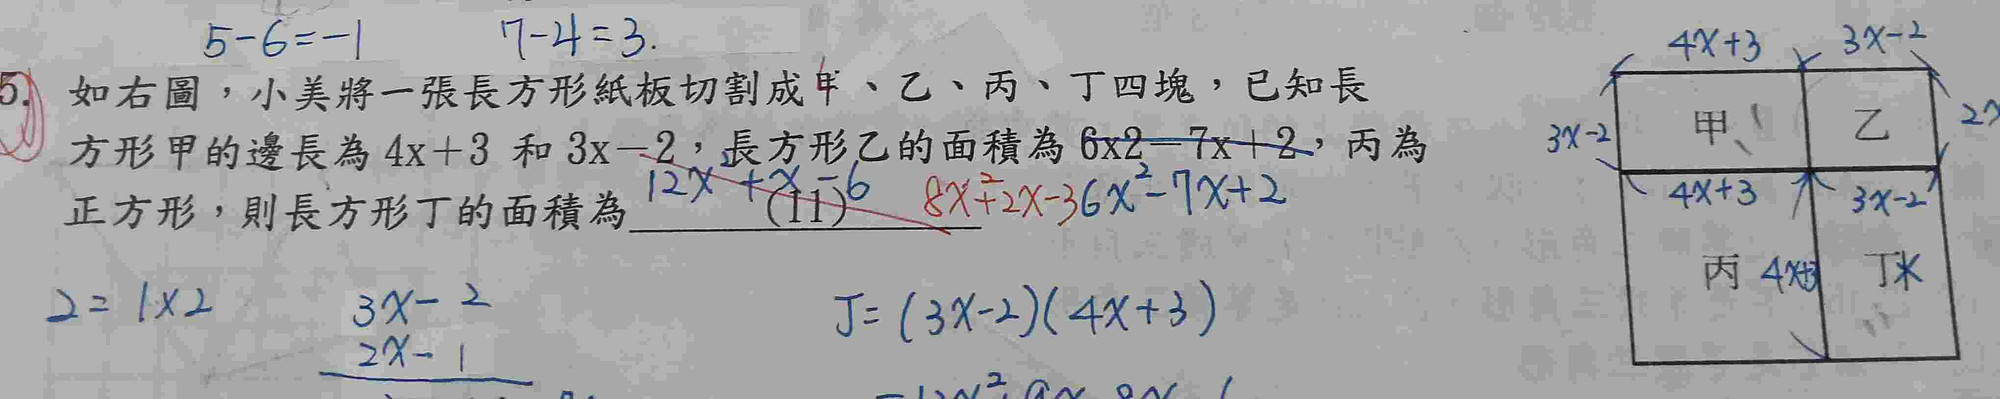 5-6=-1 7-4=3.
5. 如右圖，小美將一張長方形紙板切割成甲、乙、丙、丁四塊，已知長
方形甲的邊長為 4x＋3 和 3x－2，長方形乙的面積為 6x2－7x＋2，丙為
正方形，則長方形丁的面積為 (11)
12x +x-6 8x²+2x-3 6x²-7x+2
2=1×2 3x-2
2x-1
丁=(3x-2)(4x+3)
4x+3 3x-2
3x-2 甲 乙
4x+3 3x-2
丙 4x+3 丁